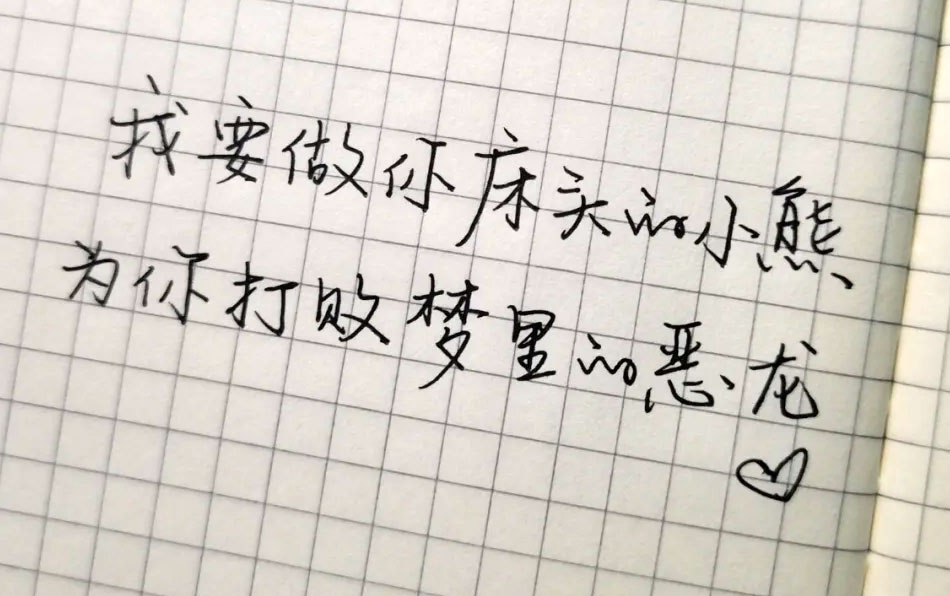 我要做你床头的小熊
为你打败梦里的恶龙